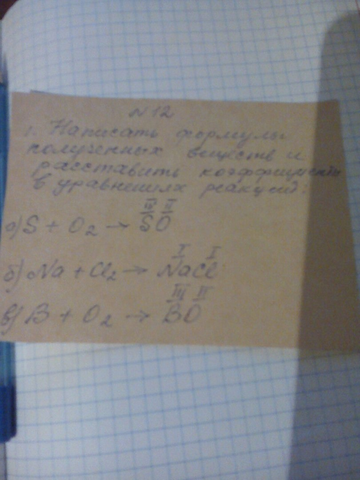 N 12
1. Написать формулы
полученных веществ и
расставить коэффициенты
в уравнениях реакций:
IV II
а) S + O₂ → SO
I I
б) Na + Cl₂ → NaCl
III II
в) B + O₂ → BO